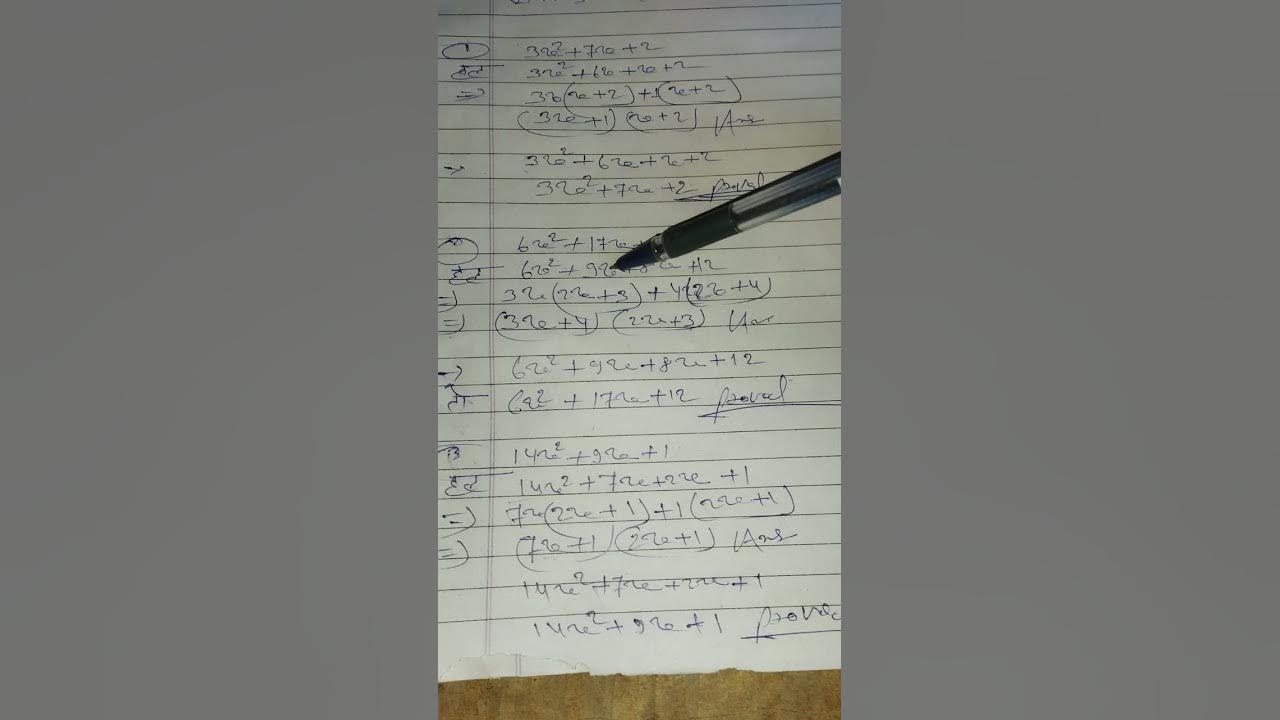 ① 3x²+7x+2
हल 3x²+6x+x+2
=> 3x(x+2)+1(x+2)
(3x+1)(x+2) Ans
→ 3x²+6x+x+2
3x²+7x+2 proved
6x²+17x+
हल 6x²+9x+8x+12
=> 3x(2x+3)+4(2x+4)
=> (3x+4)(2x+3) Ans
→ 6x²+9x+8x+12
तो 6x²+17x+12 proved
3 14x²+9x+1
हल 14x²+7x+2x+1
=> 7x(2x+1)+1(2x+1)
=> (7x+1)(2x+1) Ans
14x²+7x+2x+1
14x²+9x+1 prove